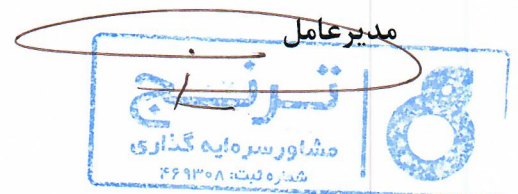 مدیرعامل
ترنج
مشاور سرمایه گذاری
شماره ثبت: ۴۶۹۳۰۸